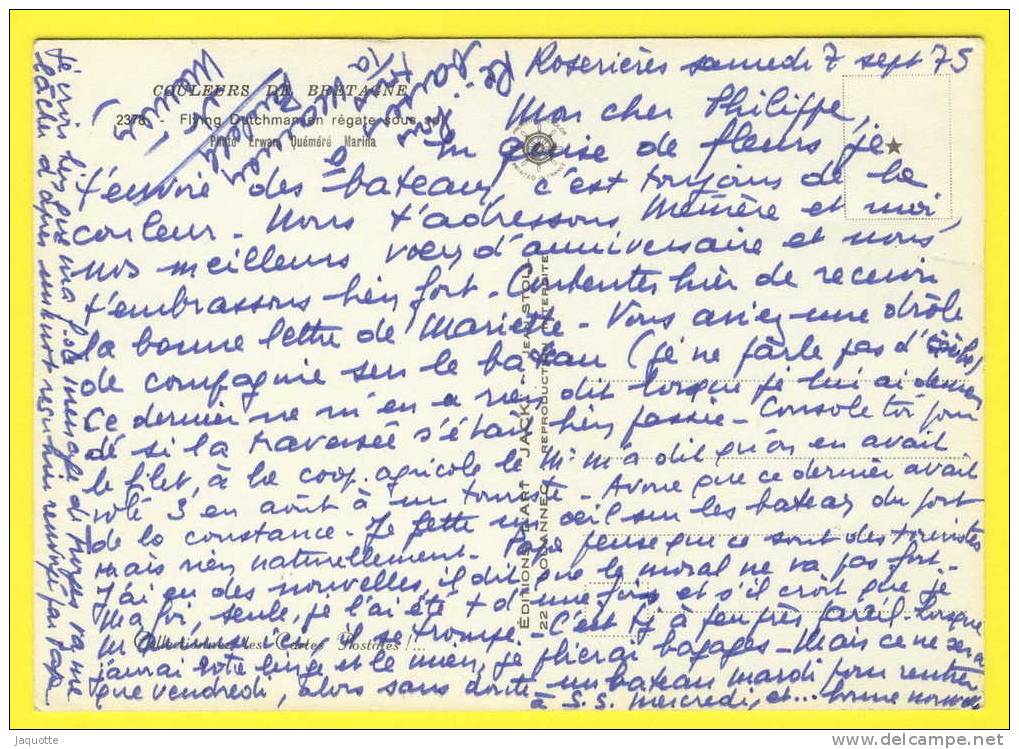 Roserières samedi 7 sept 75
COULEURS DE BRETAGNE
2378 - Flying Dutchman en régate sous spi
Photo Erwan Quéméré Marina
Mon cher Philippe,
En guise de fleurs je
t'envoie des bateaux, c'est toujours de la
couleur. Nous t'adressons, Mémère et moi,
nos meilleurs voeux d'anniversaire et nous
t'embrassons bien fort. Contentes hier de recevoir
la bonne lettre de Mariette. Vous aviez une drôle
de compagnie sur le bateau (je ne parle pas d'
Ce dernier ne m'en a rien dit lorsque je lui ai deman
dé si la traversée s'était bien passée. Console toi pour
le filet, à la coop. agricole le Mr m'a dit qu'on en avait
volé 3 en août à un touriste. Avoue que ce dernier avait
de la constance. Je jette un oeil sur les bateaux du port
mais rien naturellement. Papa pense que ce sont des touristes
J'ai eu des nouvelles, il dit que le moral ne va pas fort.
Ma foi, seule, je l'ai été + d'une fois et s'il croit que je
m'amuse ici il se trompe. C'est tj à peu près pareil. Lorsque
j'aurai votre linge et le mien, je plierai bagages. Mais ce ne sera
que vendredi, alors sans doute un bateau mardi pour rentrer
à S. S. mercredi, et... bonne nouvelle
Collectionnez les Cartes Postales !...
ÉDITIONS D'ART JACK - JEAN STOLL
22 LOUANNEC REPRODUCTION INTERDITE
PRINTED IN FRANCE
Je crois bien que ma liste ménage de